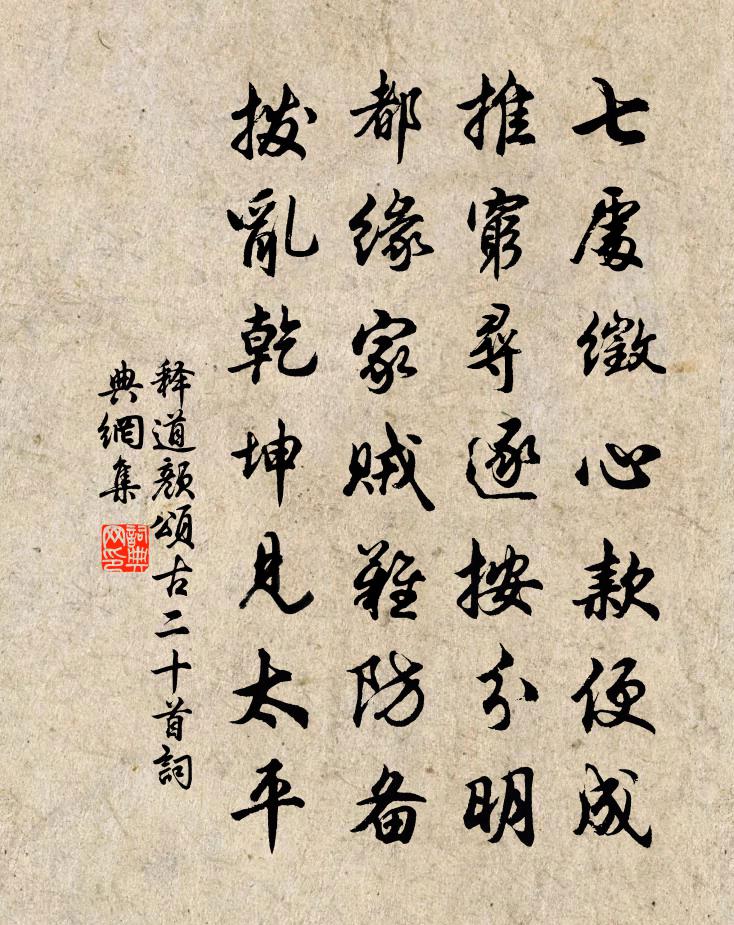 七處徵心款便成
推窮尋逐按分明
都緣家賊難防备
拨亂乾坤見太平
释道颜頌古二十首詞
典網集
詞典
网印